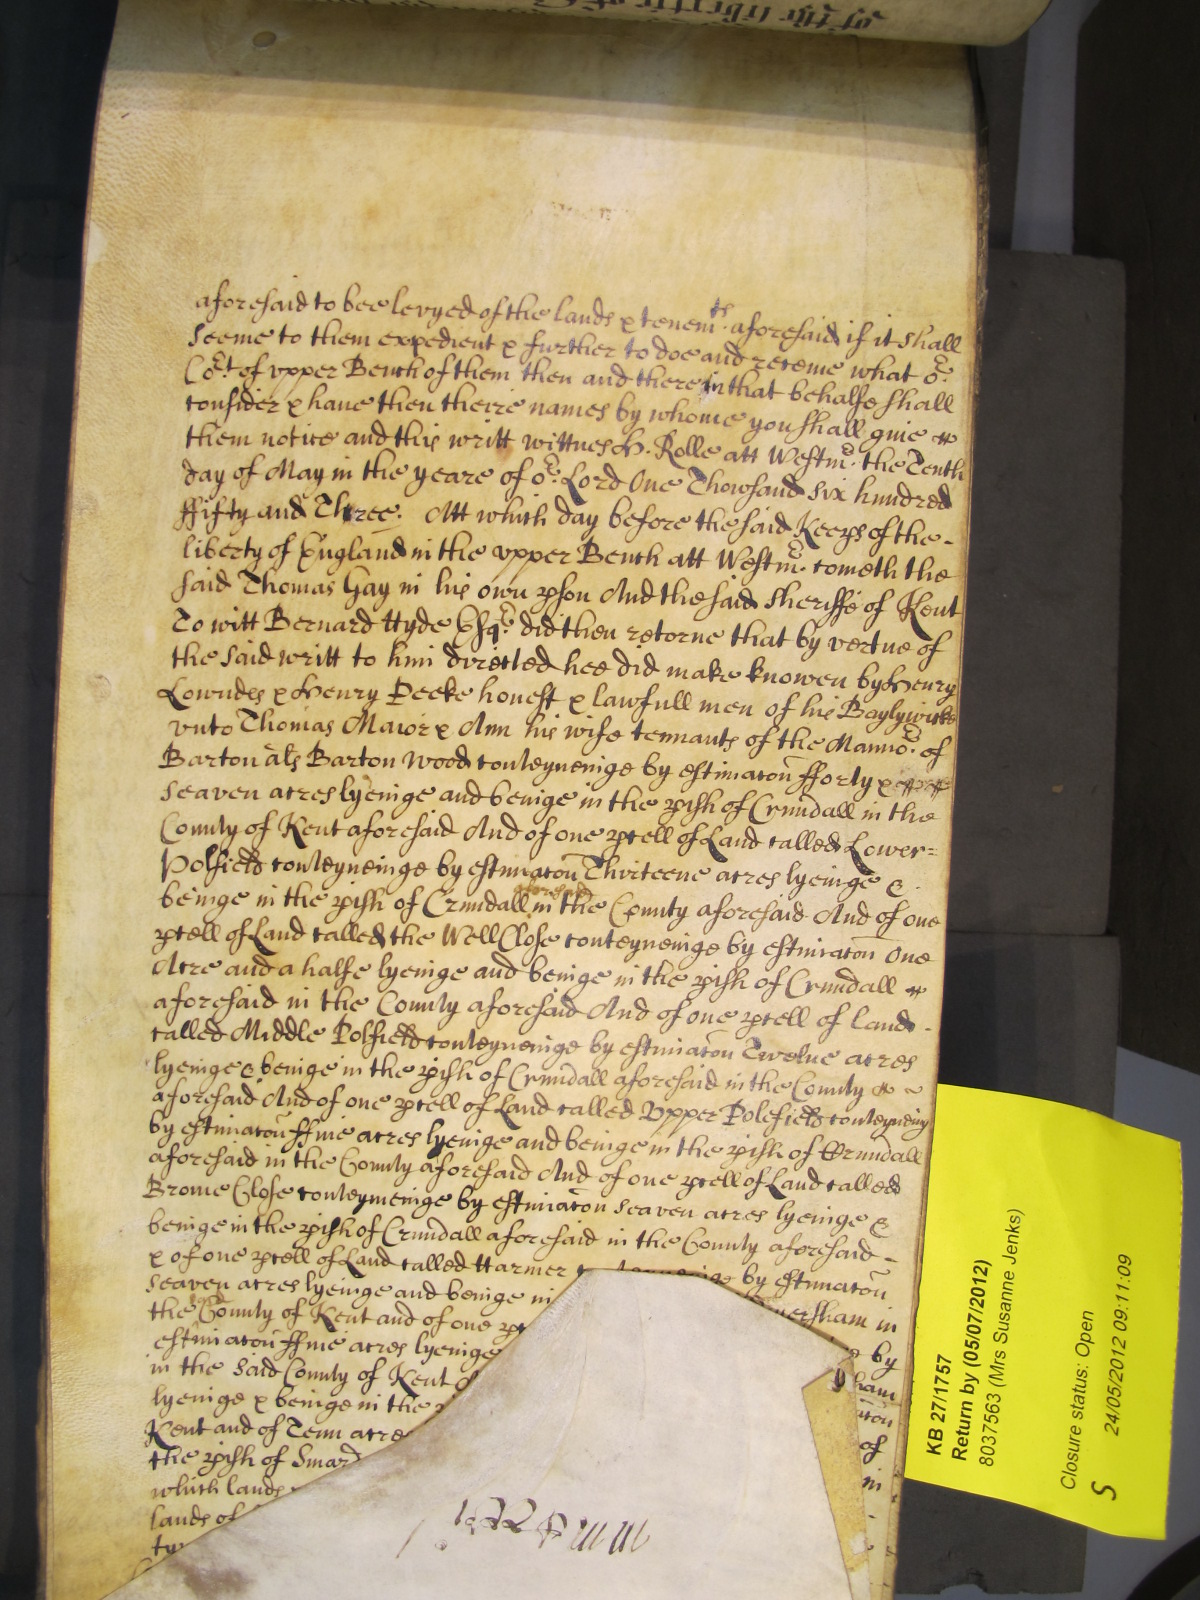 of the libertie of
aforesaid to bee levyed of the lands & tenemts. aforesaid if it shall
seeme to them expedient & further to doe and receiue what or.
Cort. of vpper Bench of them then and there in that behalfe shall
consider & haue then theire names by whome you shall giue
them notice and this writt wittnes H. Rolle att Westmr. the Tenth
day of May in the yeare of or. Lord One Thowsand Six hundred
ffifty and Three. Att which day before the said Keeps of the -
liberty of England in the vpper Bench att Westmr. cometh the
said Thomas Gay in his own pson And the said Sheriffe of Kent
To witt Bernard Hyde Esqr. did then retorne that by vertue of
the said writt to him directed hee did make knowen by Henry
Lowndes & Henry Peeke honest & lawfull men of his Baylywicke
vnto Thomas Maior & Ann his wife tennants of the Mannor. of
Barton als Barton Wood conteyneinge by estimacon fforty &
seaven acres lyeinge and beinge in the pish of Crundall in the
County of Kent aforesaid And of one pcell of Land called Lower=
Polfield conteyneinge by estimacon Thirteene acres lyeinge &
beinge in the pish of Crundall aforesaid in the County aforesaid And of one
pcell of Land called the Well Close conteyneinge by estimacon One
Acre and a halfe lyeinge and beinge in the pish of Crundall
aforesaid in the County aforesaid And of one pcell of Land -
called Middle Polfield conteyneinge by estimacon Twelue acres
lyeinge & beinge in the pish of Crundall aforesaid in the County
aforesaid And of one pcell of Land called Vpper Polefield conteyneing
by estimacon ffiue acres lyeinge and beinge in the pish of Crundall
aforesaid in the County aforesaid And of one pcell of Land called
Brome Close conteyneinge by estimacon seaven acres lyeinge &
beinge in the pish of Crundall aforesaid in the County aforesaid -
& of one pcell of Land called Harmer by estimacon
seaven acres lyeinge and beinge in ersham in
the County of Kent and of one by
estimacon ffiue acres lyeinge ham
in the said County of Kent
lyeinge & beinge in the of
Kent and of Tenn acres in
the pish of Smard
which lands
lands of
KB 27/1757
Return by (05/07/2012)
8037563 (Mrs Susanne Jenks)
Closure status: Open
S 24/05/2012 09:11:09